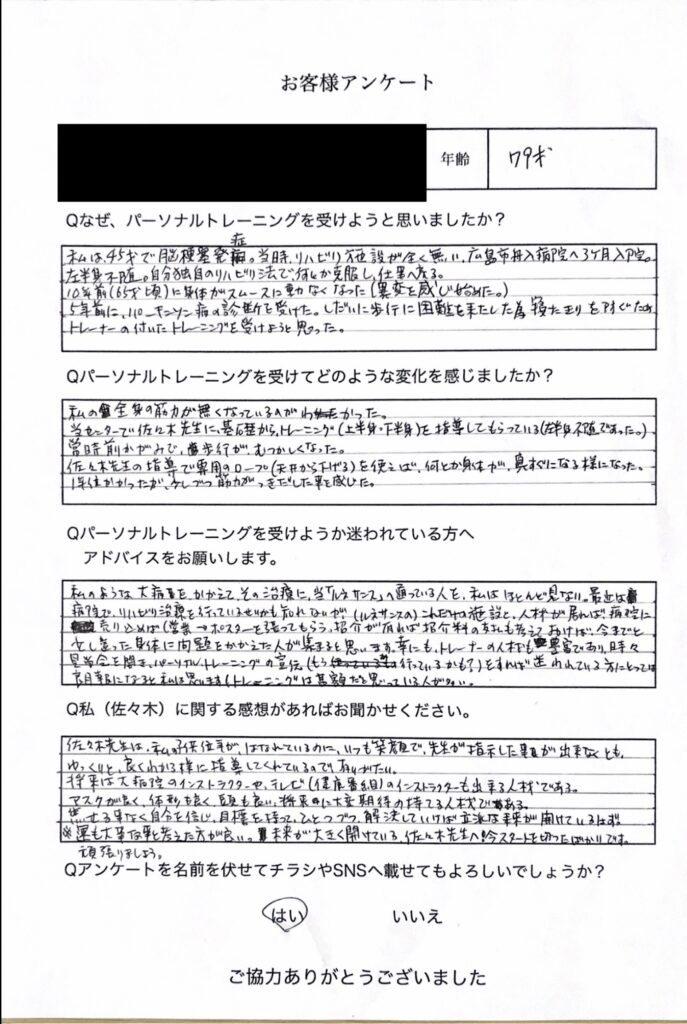 お客様アンケート
年齢 79才
Qなぜ、パーソナルトレーニングを受けようと思いましたか？
私は、45才で脳梗塞発症。当時、リハビリ施設が全く無い、広島市舟入病院へ3ヶ月入院。
左半身不随。自分独自のリハビリ法で何とか克服し、仕事へ戻る。
10年前(65才頃)に身体がスムースに動かなくなった(異変を感じ始めた。)
5年前に、パーキンソン病の診断を受けた。しだいに歩行に困難を来たした為、寝たきりをふせぐため
トレーナーの付いたトレーニングを受けようと思った。
Qパーソナルトレーニングを受けてどのような変化を感じましたか？
私の全身の筋力が無くなっているのがわかった。
当センターで佐々木先生に、基礎から、トレーニング(上半身・下半身)を指導してもらっている(左半身不随であった。)
当時前かがみで、歩行が、むつかしくなった。
佐々木先生の指導で専用のロープ(天井から下げる)を使えば、何とか身体が、真すぐになる様になった。
1年位かかったが、少しづつ筋力がつきだした事を感じた。
Qパーソナルトレーニングを受けようか迷われている方へ
アドバイスをお願いします。
私のような大病をかかえて、その治療に、当「ルネサンス」へ通っている人を、私はほとんど見ない。最近は
病院で、リハビリ治療を行っているせいかも知れないが(ルネサンスの)これだけの施設と、人材が居れば、病院に
売り込めば(営業→ポスターを張ってもらう、紹介が有れば紹介料の支払も考えておけば、今までと
少し違った身体に問題をかかえた人が集まると思います。幸にも、トレーナーの人材も豊富であり、時々
見学会を開き、パーソナルトレーニングの宣伝(もう行っているかも？)をすれば迷われている方にとっては
良い報になると私は思います(トレーニングは高額だと思っている人が多い。
Q私（佐々木）に関する感想があればお聞かせください。
佐々木先生は、私の子供位年が、はなれているのに、いつも笑顔で、先生が指示した事が出来なくとも、
ゆっくりと、良くわかる様に指導してくれているので、有りがたい。
将来は大病院のインストラクターや、テレビ(健康番組)のインストラクターも出来る人材である。
マスクが良く、体形も良く、頭も良い、将来に大変期待の持てる人材である。
焦せる事なく自分を信じ、目標を持って、ひとつづつ、解決していけば立派な未来が開けているはず
※運も大事な事と考えた方が良い。未来が大きく開けている、佐々木先生へ!今スタートを切ったばかりです。
頑張りましょう。
Qアンケートを名前を伏せてチラシやSNSへ載せてもよろしいでしょうか？
はい いいえ
ご協力ありがとうございました